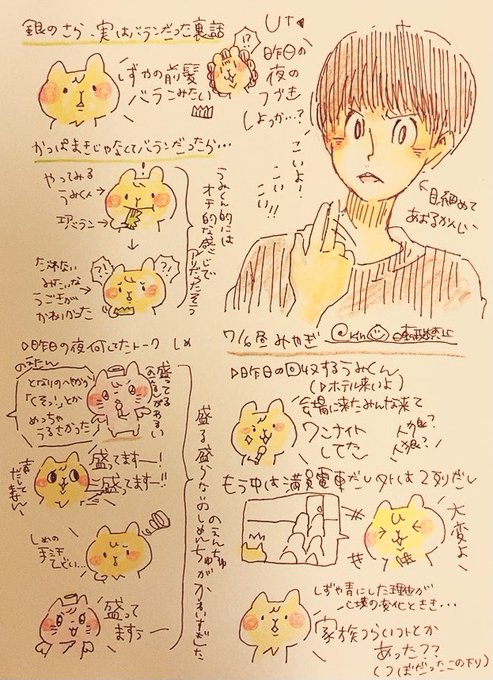 銀のさら、実はバランだった裏話
しずやの前髪
バランみたい
!?
かっぱまきじゃなくてバランだったら…
やってみる
うみくん→
バラン→
?!
?!
たべれない
みたいな
うごきが
かわいかった
うみくん的には
オチ的な感じで
アリだったそう
U↑
昨日の
夜の
つづき
しようか…?
こいよ!
こい
こい!!
目細めて
あおるかんじ
7/6昼みやぎ
転載禁止
▷昨日の夜何してたトーク
しめ
のえたん
となりのへやから
「くそっ!」とか
めっちゃ
うるさかった
盛ってる
盛ってますー!
盛ってますー!!
しめの
手汗
てどい…
盛って
ますぅー
盛る盛らないのしめんちゅが
かわいすぎました
▷昨日の回収するうみくん
(▷ホテル来いよ)
会場に来たみんな来て
ワンナイト
してた
人狼?
人狼?
もう中は満員電車だし外は2列だし
大変よ
しずや青にした理由が
心境の変化ときき…
家族つらいコトとか
あった??
(つばだったこの下り)